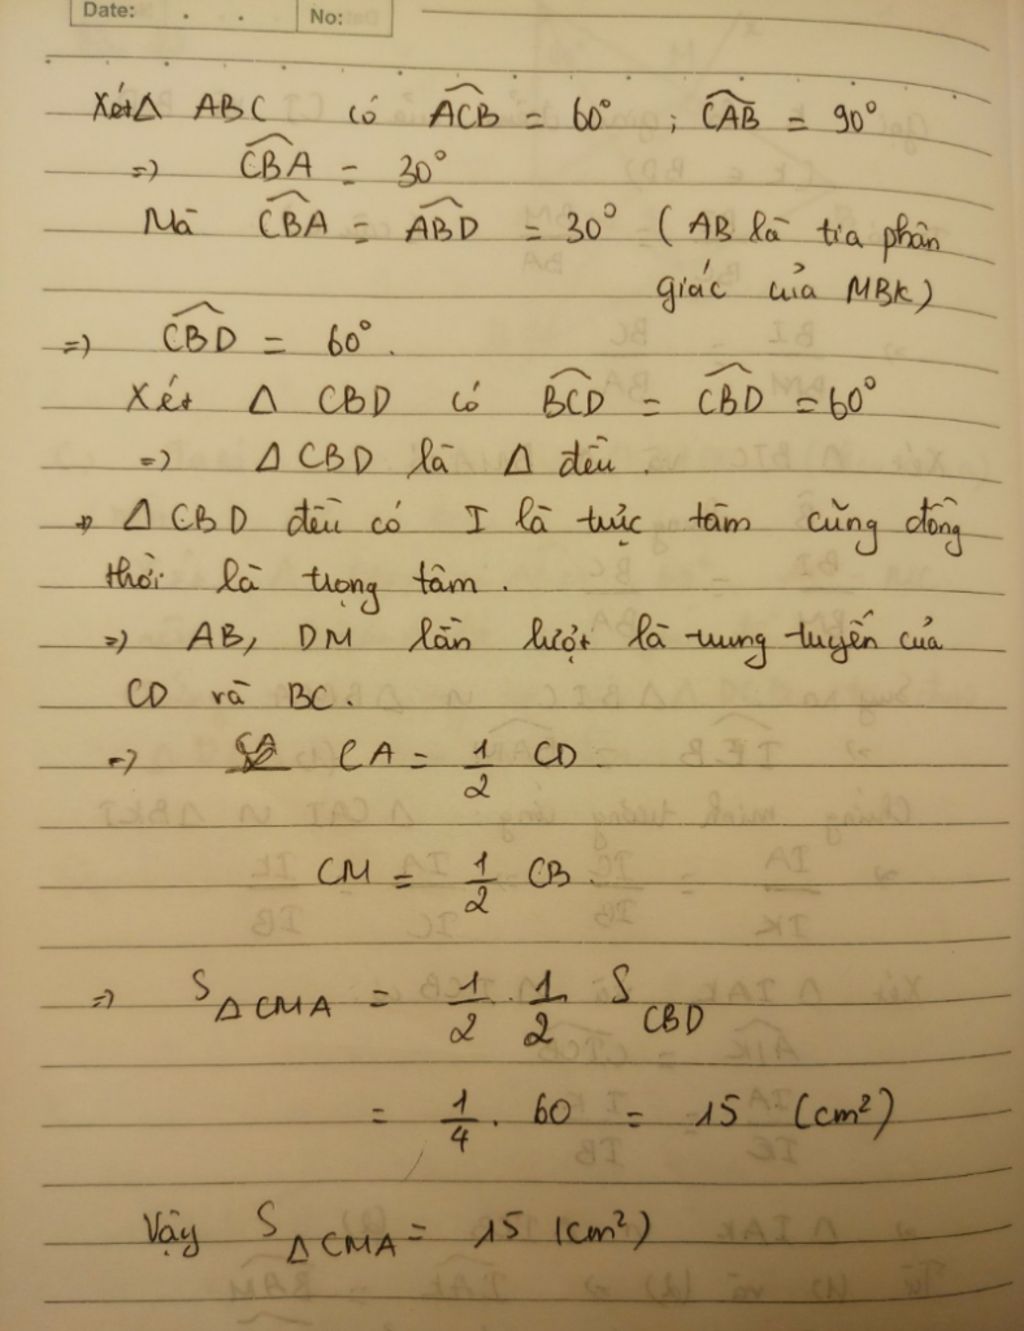 Date: . . No:
Xét Δ ABC có \widehat{ACB} = 60° ; \widehat{CAB} = 90°
=) \widehat{CBA} = 30°
Mà \widehat{CBA} = \widehat{ABD} = 30° ( AB là tia phân
giác của MBK)
=) \widehat{CBD} = 60° .
Xét Δ CBD có \widehat{BCD} = \widehat{CBD} = 60°
=) Δ CBD là Δ đều .
=) Δ CBD đều có I là trực tâm cũng đồng
thời là trọng tâm .
=) AB, DM lần lượt là trung tuyến của
CD và BC .
=) CA = 1/2 CD
CM = 1/2 CB .
=) S_{Δ CMA} = 1/2 . 1/2 S_{CBD}
= 1/4 . 60 = 15 (cm²)
Vậy S_{Δ CMA} = 15 (cm²)